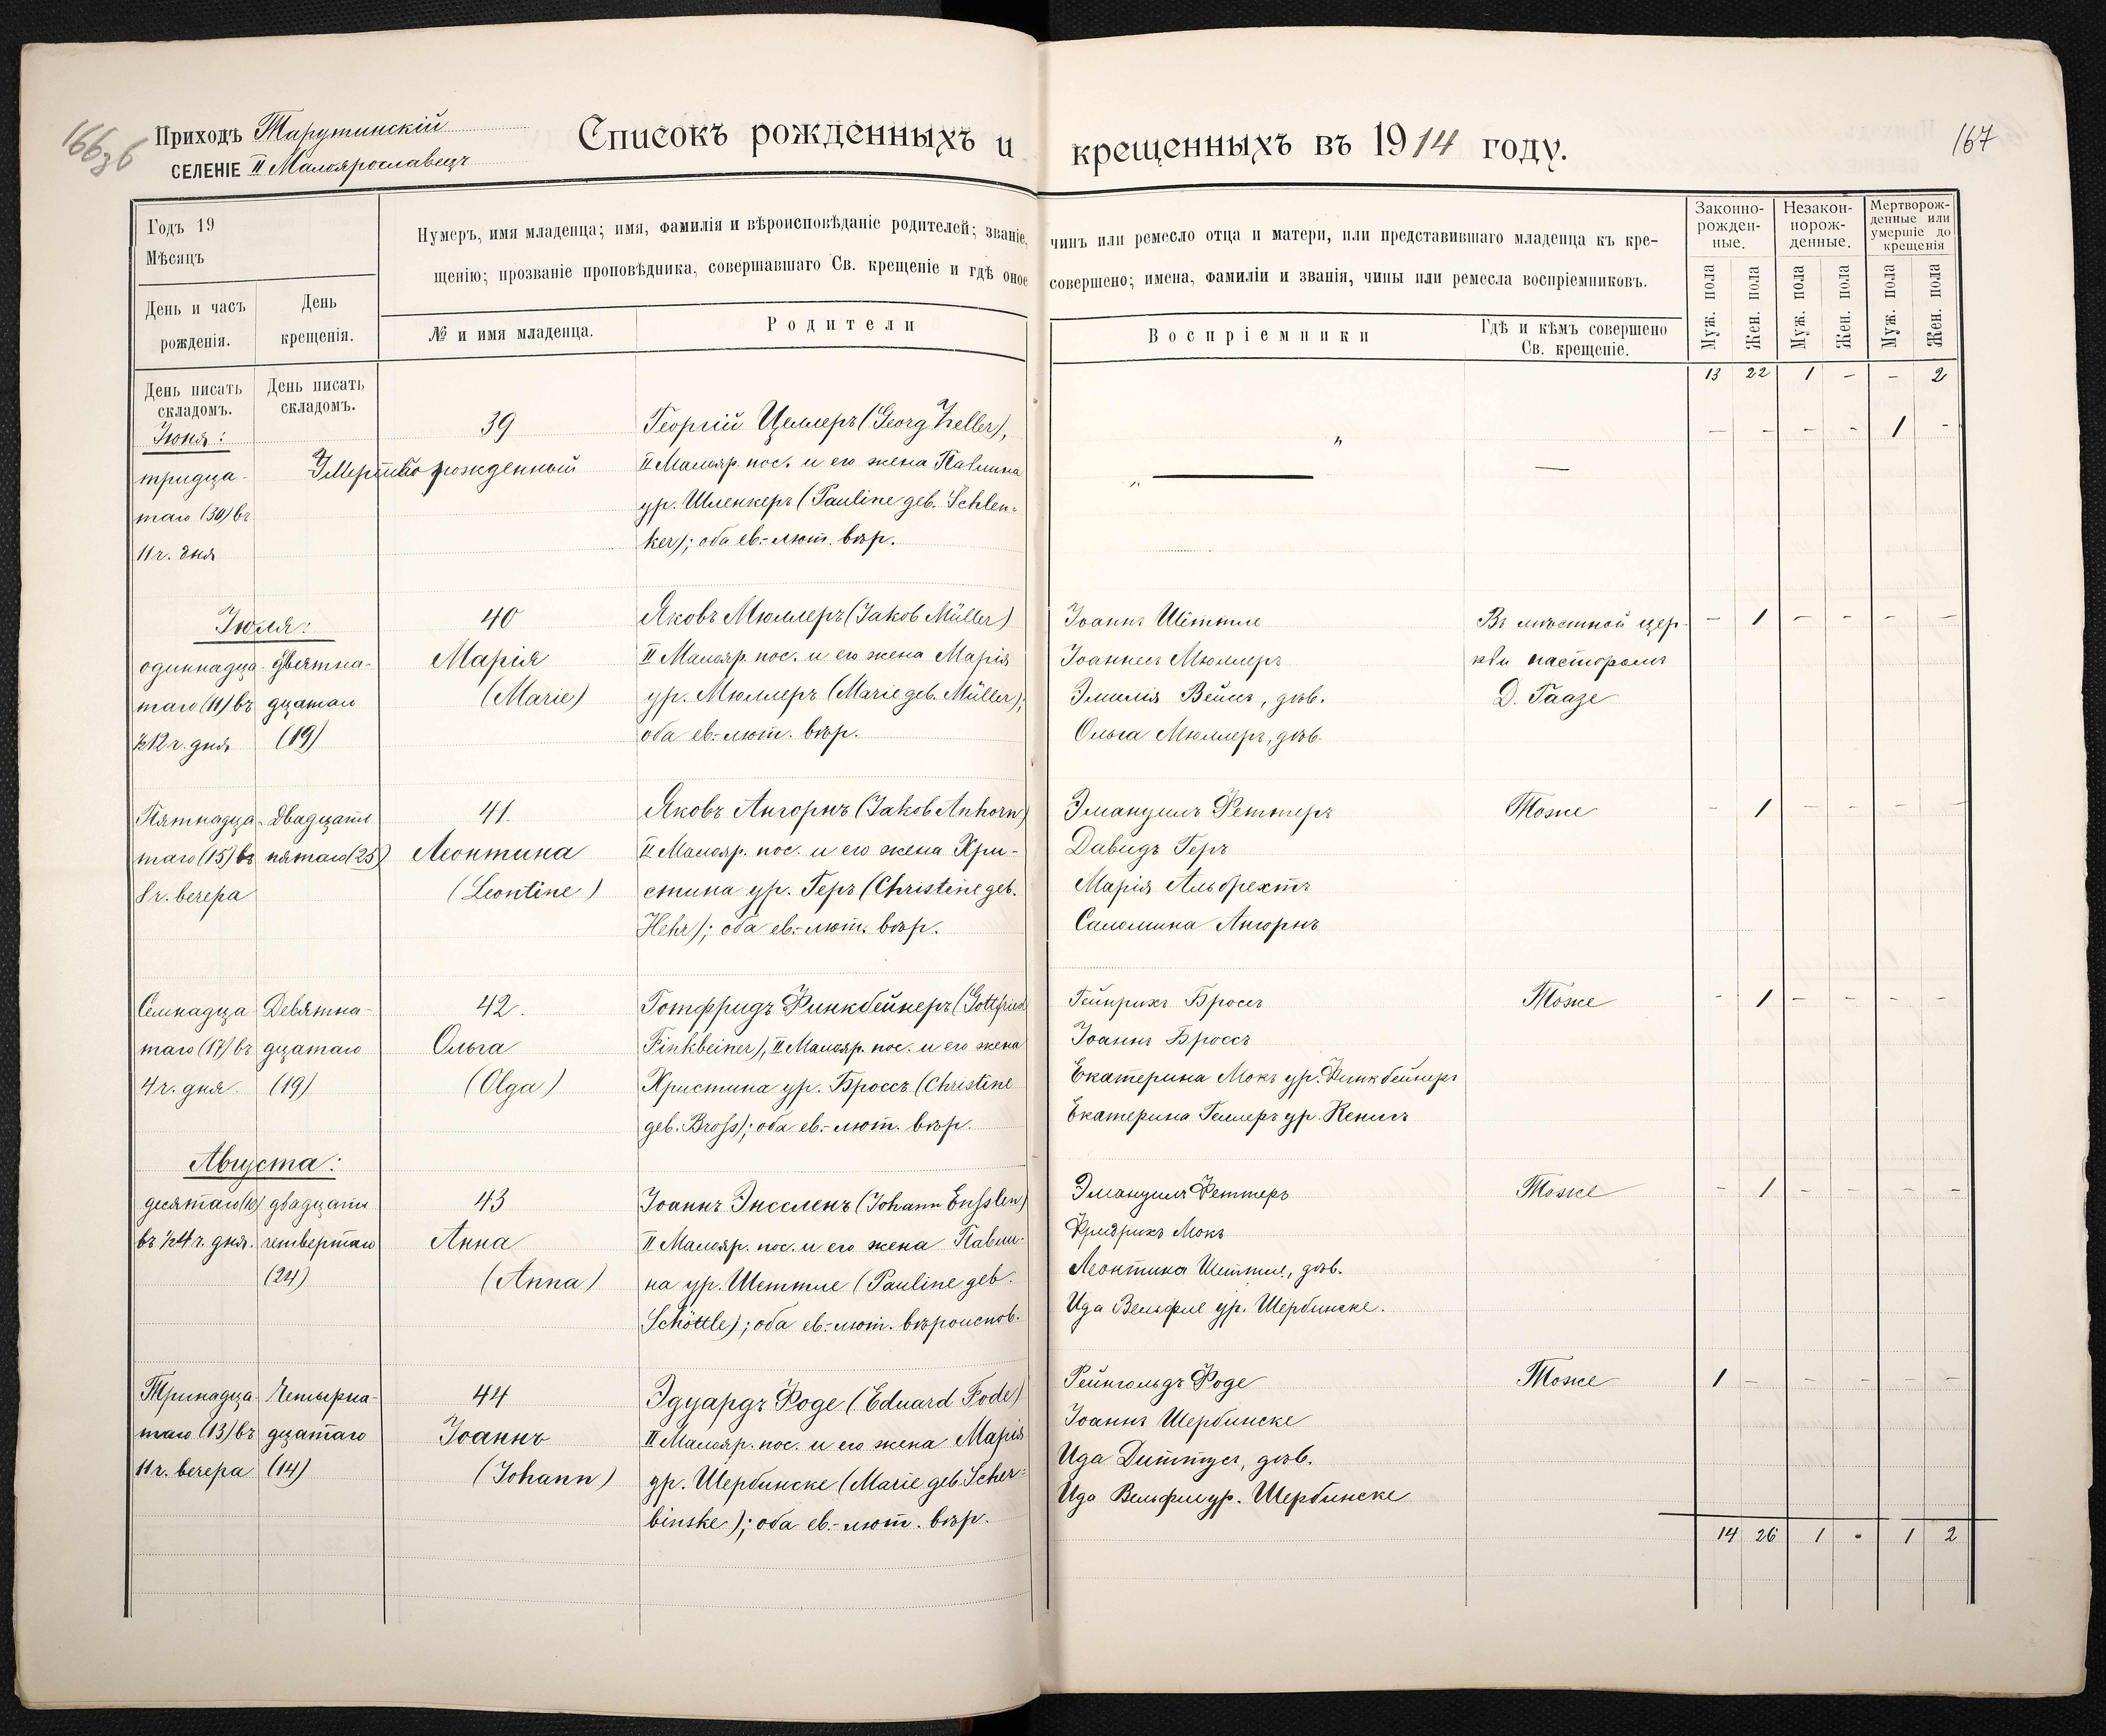 166 зб
Приходъ Тарутинскій
селеніе II Малоярославецъ
Списокъ рожденныхъ и крещенныхъ въ 1914 году.
167
Годъ 19
Мѣсяцъ
День и часъ рожденія.
День крещенія.
Нумеръ, имя младенца; имя, фамилія и вѣроисповѣданіе родителей; званіе, чинъ или ремесло отца и матери, или представившаго младенца къ кре-
щенію; прозваніе проповѣдника, совершавшаго Св. крещеніе и гдѣ оное совершено; имена, фамиліи и званія, чины или ремесла воспріемниковъ.
№ и имя младенца.
Родители
Воспріемники
Гдѣ и кѣмъ совершено
Св. крещеніе.
Законно-
рожден-
ные.
Незакон-
норож-
денные.
Мертворож-
денные или
умершіе до
крещенія
Муж. пола
Жен. пола
Муж. пола
Жен. пола
Муж. пола
Жен. пола
День писать
складомъ.
День писать
складомъ.
13 22 1 – – 2
Іюня:
тридца-
таго (30) въ
11 ч. дня
39
Мертворожденный
Георгій Целлеръ (Georg Zeller),
II Малояр. пос. и его жена Павлина
ур. Шленкеръ (Pauline geb. Schlen-
ker); оба ев.-лют. вѣр.
– – – – 1 –
Іюля:
одиннадца-
таго (11) въ
½12 ч. дня
девятна-
дцатаго
(19)
40
Марія
(Marie)
Яковъ Мюллеръ (Jakob Müller)
II Малояр. пос. и его жена Марія
ур. Мюллеръ (Marie geb. Müller);
оба ев.-лют. вѣр.
Іоаннъ Шеттле
Іоаннесъ Мюллеръ
Эмилія Вейсъ, дѣв.
Ольга Мюллеръ, дѣв.
Въ мѣстной цер-
кви пасторомъ
Д. Гаазе
– 1 – – – –
Пятнадца-
таго (15) въ
8 ч. вечера
двадцать
пятаго (25)
41.
Леонтина
(Leontine)
Яковъ Ангорнъ (Jakob Anhorn)
II Малояр. пос. и его жена Хри-
стина ур. Геръ (Christine geb.
Hehr); оба ев.-лют. вѣр.
Эмануилъ Феттеръ
Давидъ Геръ
Марія Альбрехтъ
Саломина Ангорнъ
Тоже
– 1 – – – –
Семнадца
таго (17) въ
4 ч. дня.
Девятна-
дцатаго
(19)
42.
Ольга
(Olga)
Готфридъ Финкбейнеръ (Gottfried
Finkbeiner), II Малояр. пос. и его жена
Христина ур. Броссъ (Christine
geb. Bross); оба ев.-лют. вѣр.
Гейнрихъ Броссъ
Іоаннъ Броссъ
Екатерина Мокъ ур. Финкбейнеръ
Екатерина Геллеръ ур. Кенигъ
Тоже
– 1 – – – –
Августа:
десятаго (10)
въ ½4 ч. дня.
двадцать
четвертаго
(24)
43
Анна
(Anna)
Іоаннъ Энссленъ (Johann Ensslen)
II Малояр. пос. и его жена Павли-
на ур. Шеттле (Pauline geb.
Schöttle); оба ев.-лют. вѣроиспов.
Эмануилъ Феттеръ
Фридрихъ Мокъ
Леонтина Шеттле, дѣв.
Ида Вельфле ур. Шербинске.
Тоже
– 1 – – – –
Тринадца-
таго (13) въ
11 ч. вечера
Четырна-
дцатаго
(14)
44
Іоаннъ
(Johann)
Эдуардъ Фоде (Eduard Fode)
II Малояр. пос. и его жена Марія
ур. Шербинске (Marie geb. Scher-
binske); оба ев.-лют. вѣр.
Рейнгольдъ Фоде
Іоаннъ Шербинске
Ида Диттусъ, дѣв.
Ида Вельфле ур. Шербинске
Тоже
1 – – – – –
14 26 1 - 1 2